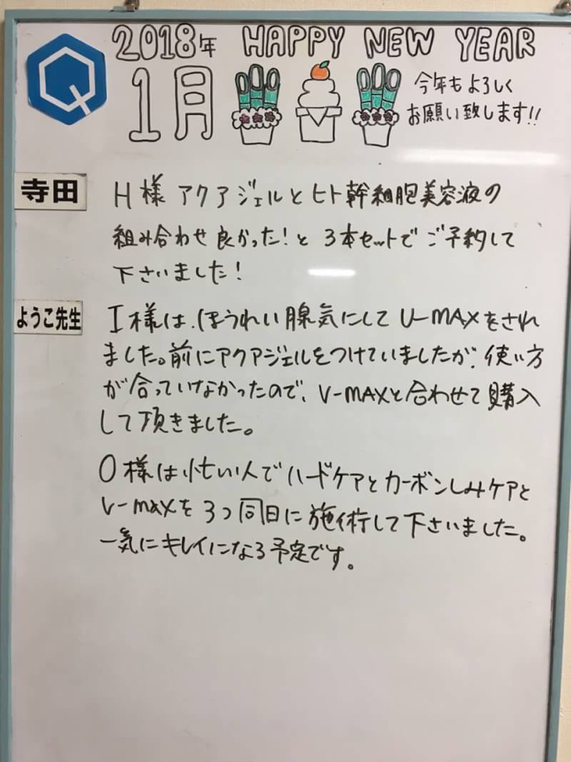 2018年 HAPPY NEW YEAR
1月
今年もよろしく
お願い致します!!
寺田
H様 アクアジェルとヒト幹細胞美容液の
組み合わせ良かった!と 3本セットでご予約して
下さいました!
ようこ先生
I様は、ほうれい腺気にして U-MAXをされ
ました。前にアクアジェルをつけていましたが、使い方
が合っていなかったので、V-MAXと合わせて購入
して頂きました。
O様は忙しい人でハードケアとカーボンしみケアと
V-maxを3つ同日に施術して下さいました。
一気にキレイになる予定です。